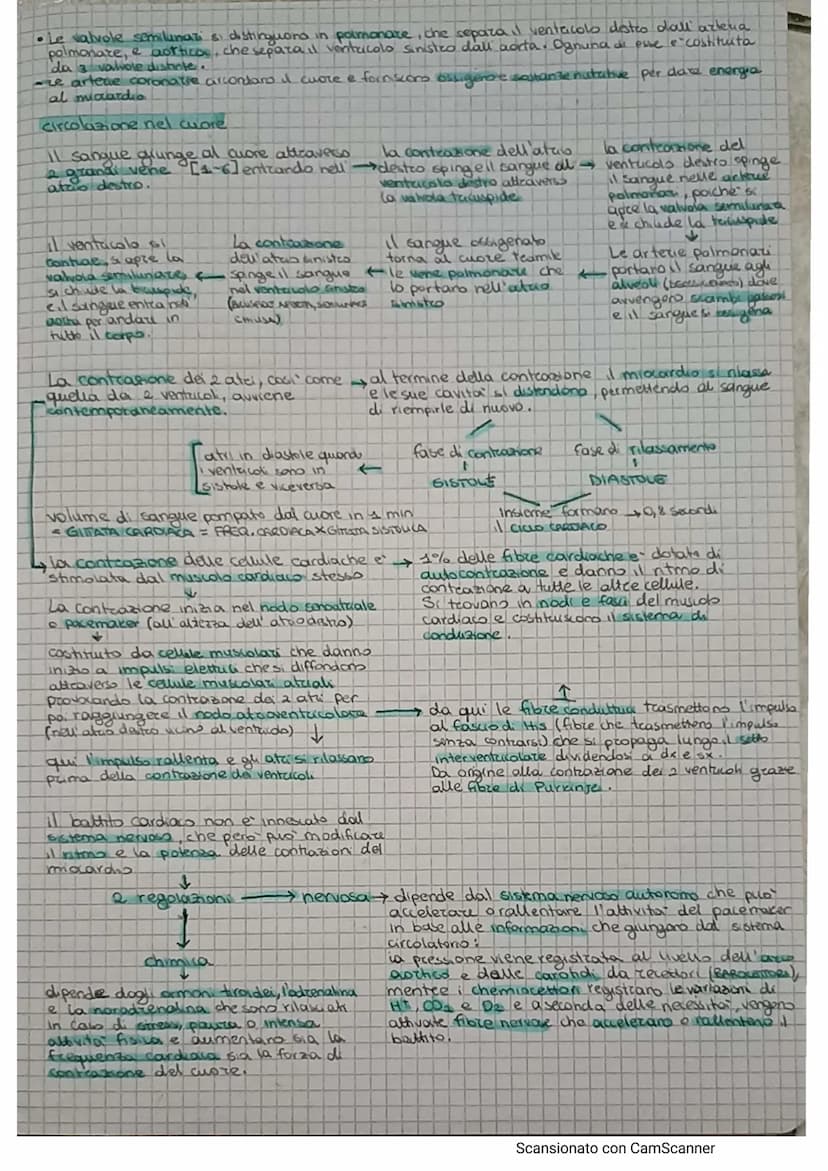 • Le valvole semilunari si distinguono in polmonare, che separa il ventricolo destro dall'arteria
polmonare, e aortica, che separa il ventricolo sinistro dall'aorta. Ognuna di esse e' costituita
da 3 valvole distinte.
- Le arterie coronarie circondano il cuore e forniscono ossigeno e sostanze nutritive per dare energia
al miocardio
circolazione nel cuore
il sangue giunge al cuore attraverso
2 grandi vene [1-6] entrando nell'
atrio destro.
→ la contrazione dell'atrio
destro spinge il sangue al
ventricolo destro attraverso
la valvola tricuspide
→ la contrazione del
ventricolo destro spinge
il sangue nelle arterie
polmonari, poiche' si
apre la valvola semilunare
e si chiude la tricuspide
↓
Le arterie polmonari
portano il sangue agli
alveoli dove
avvengono scambi gassosi
e il sangue si ossigena
← il sangue ossigenato
torna al cuore tramite
le vene polmonari che
lo portano nell'atrio
sinistro
← La contrazione
dell'atrio sinistro
spinge il sangue
nel ventricolo sinistro
chiusa)
← il ventricolo si
contrae, si apre la
valvola semilunare,
si chiude la bicuspide,
e il sangue entra nell'
aorta per andare in
tutto il corpo.
La contrazione dei 2 atri, cosi' come
quella da 2 ventricoli, avviene
contemporaneamente.
→ al termine della contrazione il miocardio si rilassa
e le sue cavita' si distendono, permettendo al sangue
di riempirle di nuovo.
fase di contrazione
SISTOLE
fase di rilassamento
DIASTOLE
← atri in diastole quando
i ventricoli sono in
sistole e viceversa
insieme formano → 0,8 secondi
il CICLO CARDIACO
volume di sangue pompato dal cuore in 1 min
= GITTATA CARDIACA = FREQ. CARDIACA X GITTATA SISTOLICA
la contrazione delle cellule cardiache e'
stimolata dal muscolo cardiaco stesso
→ 1% delle fibre cardiache e' dotata di
autocontrazione e danno il ritmo di
contrazione a tutte le altre cellule.
Si trovano in nodi e fasci del muscolo
cardiaco e costituiscono il sistema di
conduzione.
↓
La contrazione inizia nel nodo senoatriale
o pacemaker (all'altezza dell'atrio destro)
↓
costituito da cellule muscolari che danno
inizio a impulsi elettrici che si diffondono
attraverso le cellule muscolari atriali
provocando la contrazione dei 2 atri per
poi raggiungere il nodo atrioventricolare
(nell'atrio destro vicino al ventricolo) ↓
qui l'impulso rallenta e gli atri si rilassano
prima della contrazione dei ventricoli
↑
→ da qui le fibre conduttrici trasmettono l'impulso
al fascio di His (fibre che trasmettono l'impulso
senza contrarsi) che si propaga lungo il setto
interventricolare dividendosi a dx e sx.
Da origine alla contrazione dei 2 ventricoli grazie
alle fibre di Purkinje.
il battito cardiaco non e' innescato dal
sistema nervoso, che pero' puo' modificare
il ritmo e la potenza delle contrazioni del
miocardio
↓
2 regolazioni → nervosa → dipende dal sistema nervoso autonomo che puo'
accelerare o rallentare l'attivita' del pacemaker
in base alle informazioni che giungono dal sistema
circolatorio:
la pressione viene registrata al livello dell'arco
aortico e delle carotidi da recettori (BAROCETTORI),
mentre i chemiocettori registrano le variazioni di
H+, CO2 e O2 e a seconda delle necessita', vengono
attivate fibre nervose che accelerano o rallentano il
battito.
↓
chimica
↓
dipende dagli ormoni tiroidei, l'adrenalina
e la noradrenalina che sono rilasciati
in caso di stress, paura o intensa
attivita' fisica e aumentano sia la
frequenza cardiaca sia la forza di
contrazione del cuore.
Scansionato con CamScanner